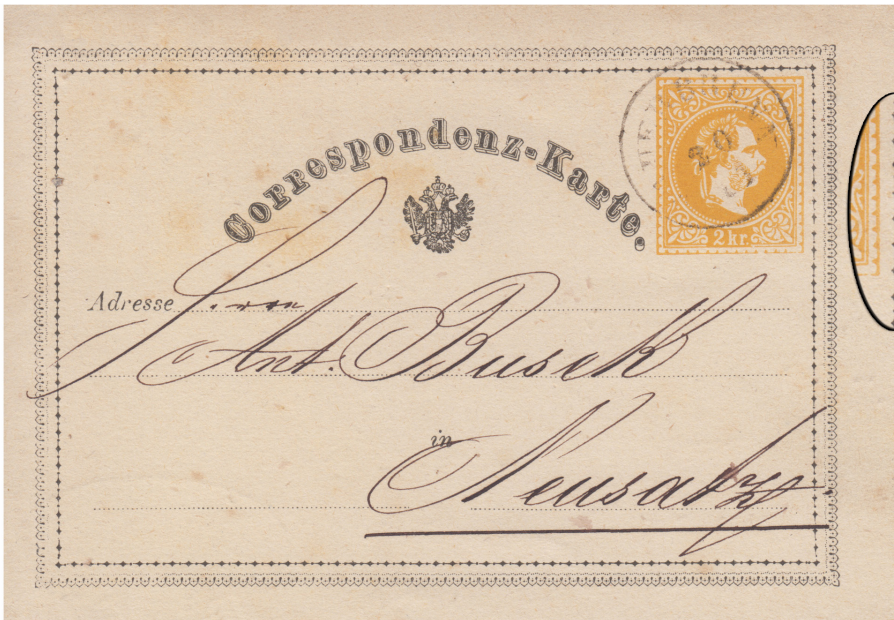 Correspondenz-Karte.
20
2 kr.
Adresse
Ant. Busek
in
Neusatz